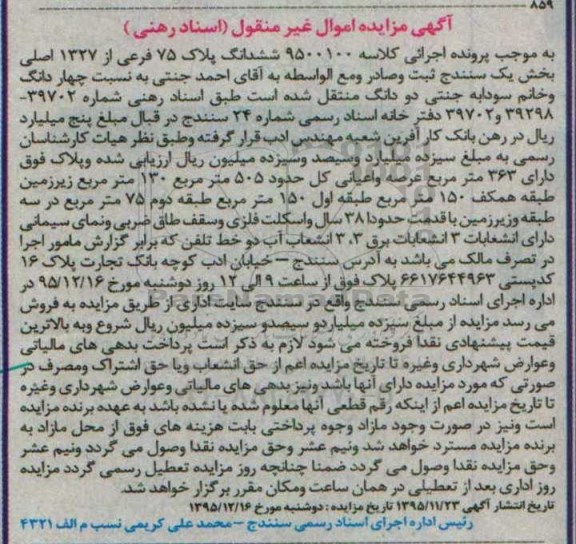 ۸۵۹
آگهی مزایده اموال غیر منقول (اسناد رهنی)
به موجب پرونده اجرائی کلاسه ۹۵۰۰۱۰۰ ششدانگ پلاک ۷۵ فرعی از ۱۳۲۷ اصلی
بخش یک سنندج ثبت وصادر ومع الواسطه به آقای احمد جنتی به نسبت چهار دانگ
وخانم سودابه جنتی دو دانگ منتقل شده است طبق اسناد رهنی شماره ۳۹۷۰۲-
۳۹۲۹۸ و۳۹۷۰۲ دفتر خانه اسناد رسمی شماره ۲۴ سنندج در قبال مبلغ پنج میلیارد
ریال در رهن بانک کار آفرین شعبه مهندس ادب قرار گرفته وطبق نظر هیات کارشناسان
رسمی به مبلغ سیزده میلیارد وسیصد وسیزده میلیون ریال ارزیابی شده وپلاک فوق
دارای ۳۶۳ متر مربع عرصه واعیانی کل حدود ۵۰۵ متر مربع ۱۳۰ متر مربع زیرزمین
طبقه همکف ۱۵۰ متر مربع طبقه اول ۱۵۰ متر مربع طبقه دوم ۷۵ متر مربع در سه
طبقه وزیرزمین با قدمت حدودا ۳۸ سال واسکلت فلزی وسقف طاق ضربی ونمای سیمانی
دارای انشعابات ۳ انشعابات برق ۳،۳ انشعاب آب دو خط تلفن که برابر گزارش مامور اجرا
در تصرف مالک می باشد به آدرس سنندج – خیابان ادب کوچه بانک تجارت پلاک ۱۶
کدپستی ۶۶۱۷۶۴۴۹۶۳ پلاک فوق از ساعت ۹ الی ۱۲ روز دوشنبه مورخ ۹۵/۱۲/۱۶ در
اداره اجرای اسناد رسمی سنندج واقع در سنندج سایت اداری از طریق مزایده به فروش
می رسد مزایده از مبلغ سیزده میلیاردو سیصدو سیزده میلیون ریال شروع وبه بالاترین
قیمت پیشنهادی نقدا فروخته می شود لازم به ذکر است پرداخت بدهی های مالیاتی
وعوارض شهرداری وغیره تا تاریخ مزایده اعم از حق انشعاب ویا حق اشتراک ومصرف در
صورتی که مورد مزایده دارای آنها باشد ونیز بدهی های مالیاتی وعوارض شهرداری وغیره
تا تاریخ مزایده اعم از اینکه رقم قطعی آنها معلوم شده یا نشده باشد به عهده برنده مزایده
است ونیز در صورت وجود مازاد وجوه پرداختی بابت هزینه های فوق از محل مازاد به
برنده مزایده مسترد خواهد شد ونیم عشر وحق مزایده نقدا وصول می گردد ونیم عشر
وحق مزایده نقدا وصول می گردد ضمنا چنانچه روز مزایده تعطیل رسمی گردد مزایده
روز اداری بعد از تعطیلی در همان ساعت ومکان مقرر برگزار خواهد شد.
تاریخ انتشار آگهی ۱۳۹۵/۱۱/۲۳ تاریخ مزایده : دوشنبه مورخ ۱۳۹۵/۱۲/۱۶
رئیس اداره اجرای اسناد رسمی سنندج – محمد علی کریمی نسب م الف ۴۳۲۱